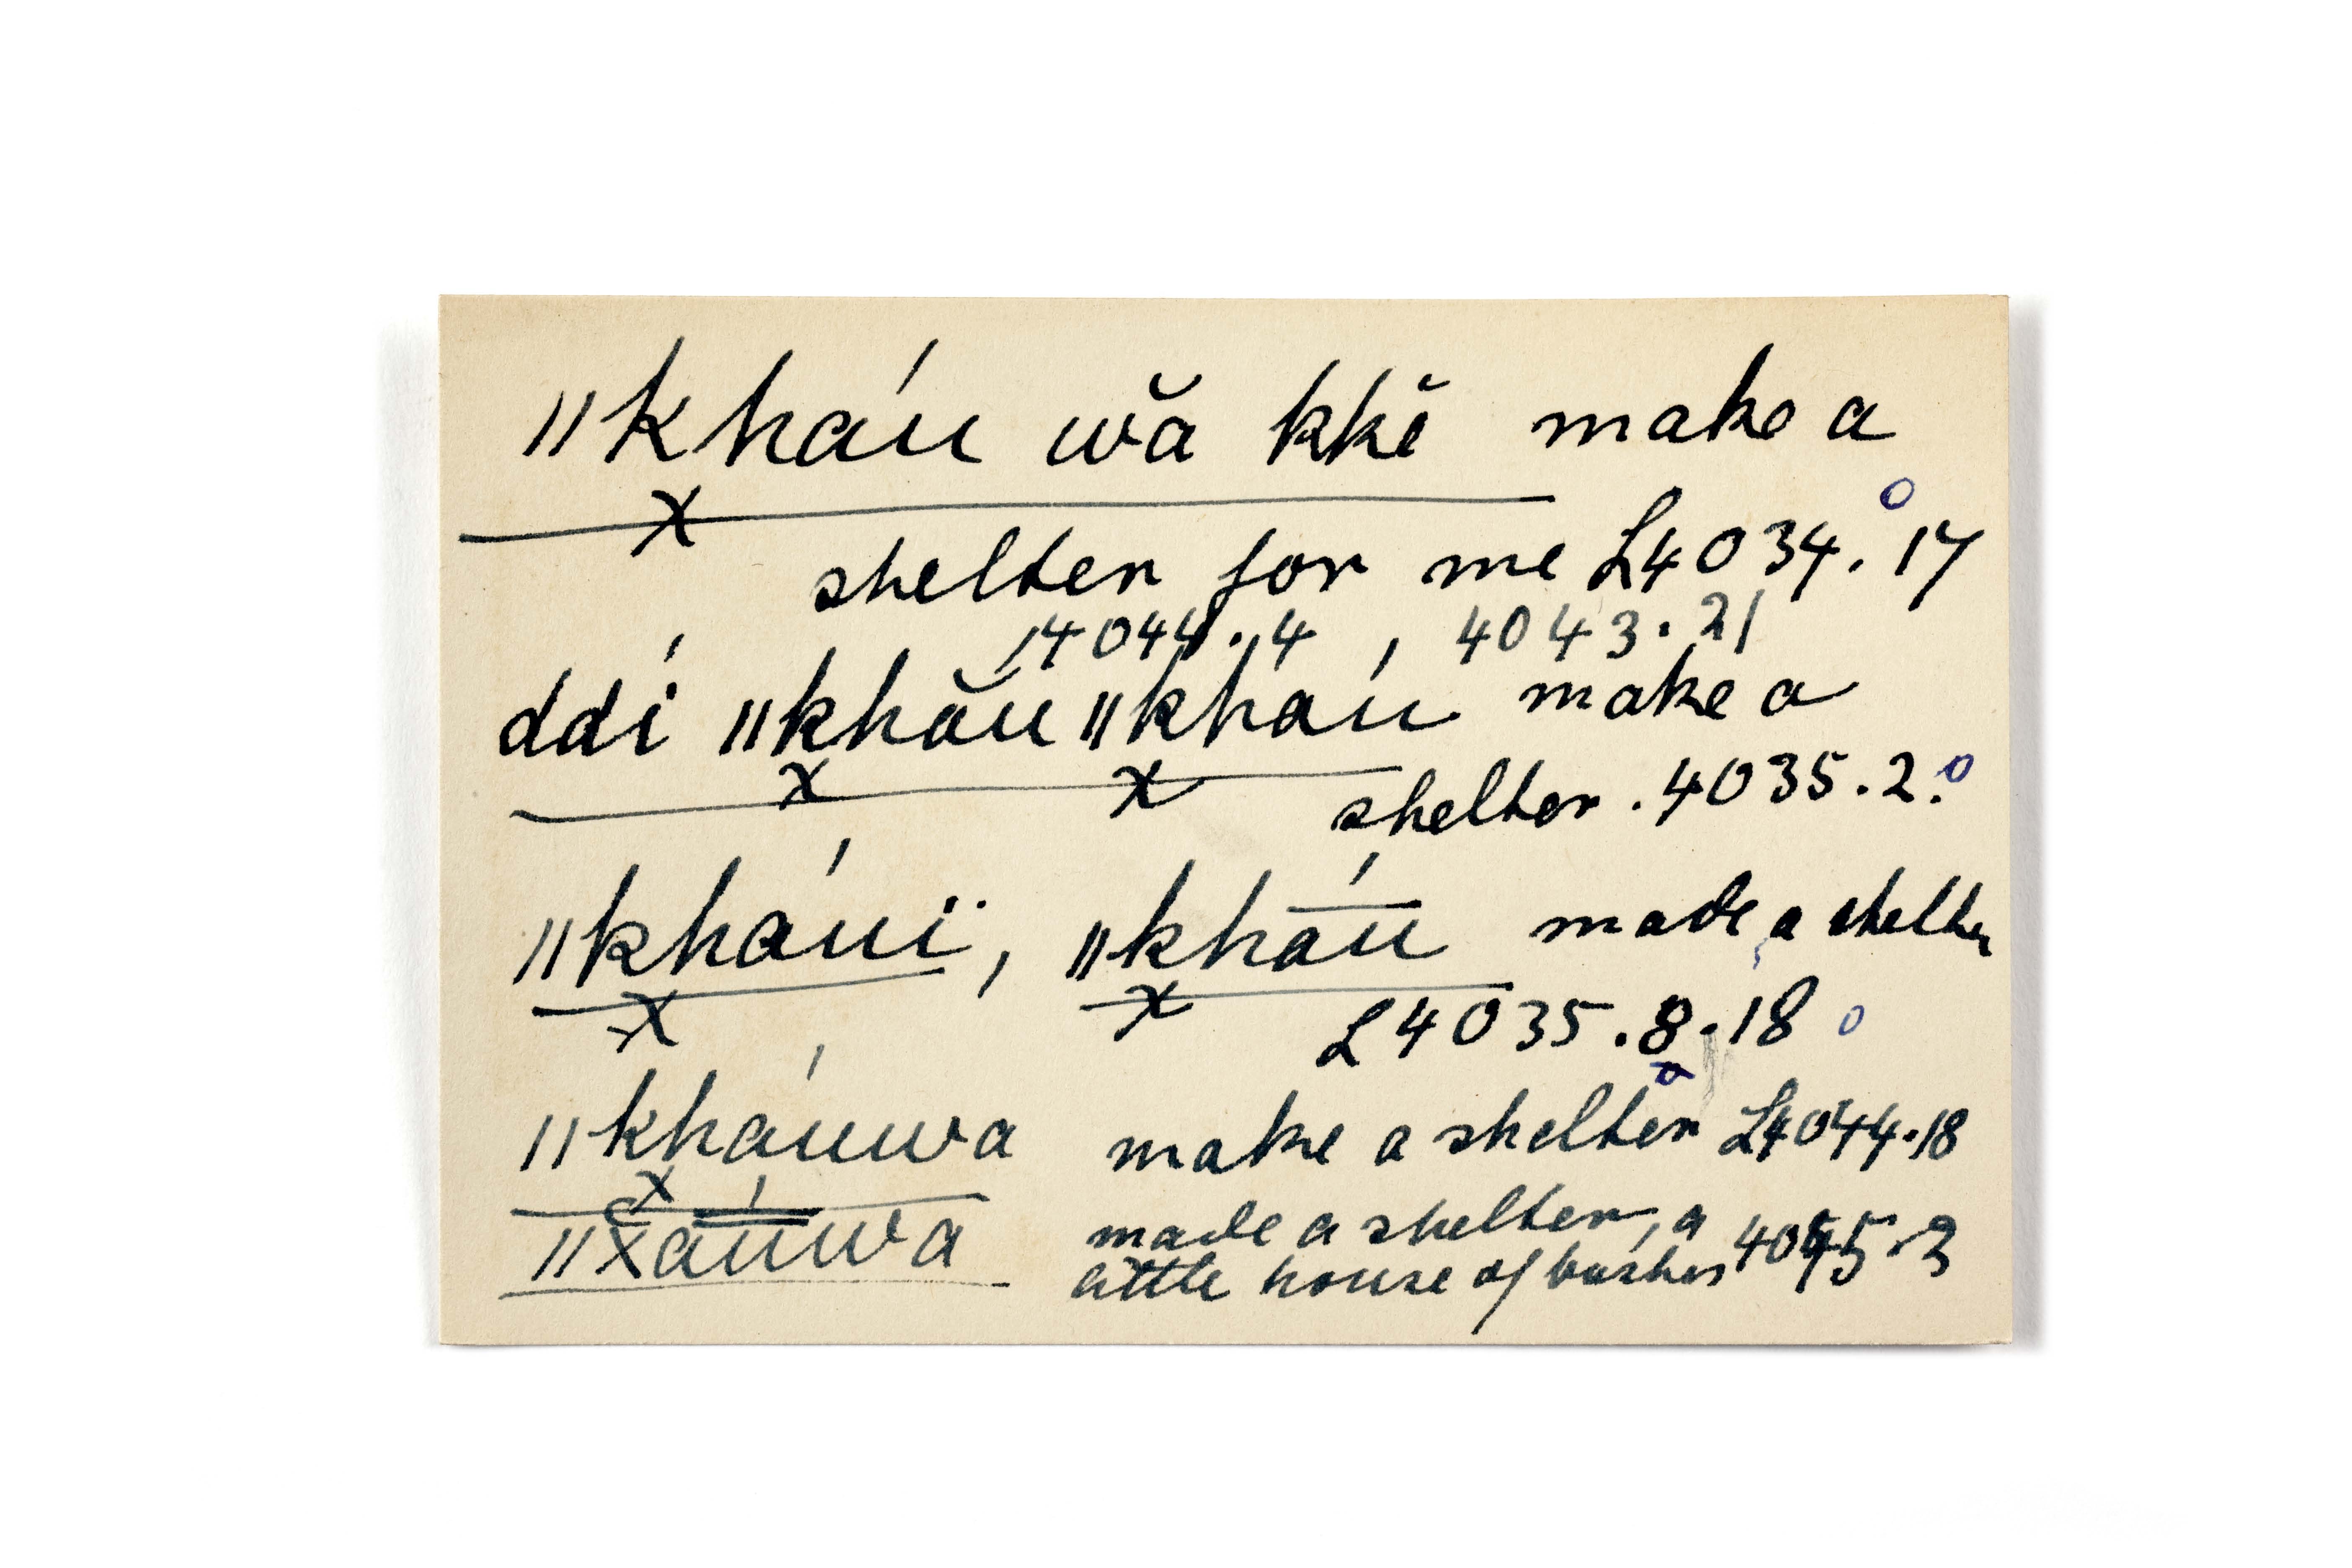 ǁkháu wă kkĕ make a
x
shelter for me L4034.17
14044.14, 4043.21
ddí ǁkhău ǁkháu make a
x x
shelter. 4035.2.
ǁkháuï, ǁkhā́u made a shelter
x x
L4035.8.18
ǁkháuwa make a shelter L4044.18
x
ǁxā́uwa made a shelter, a 4045.3
little house of bushes